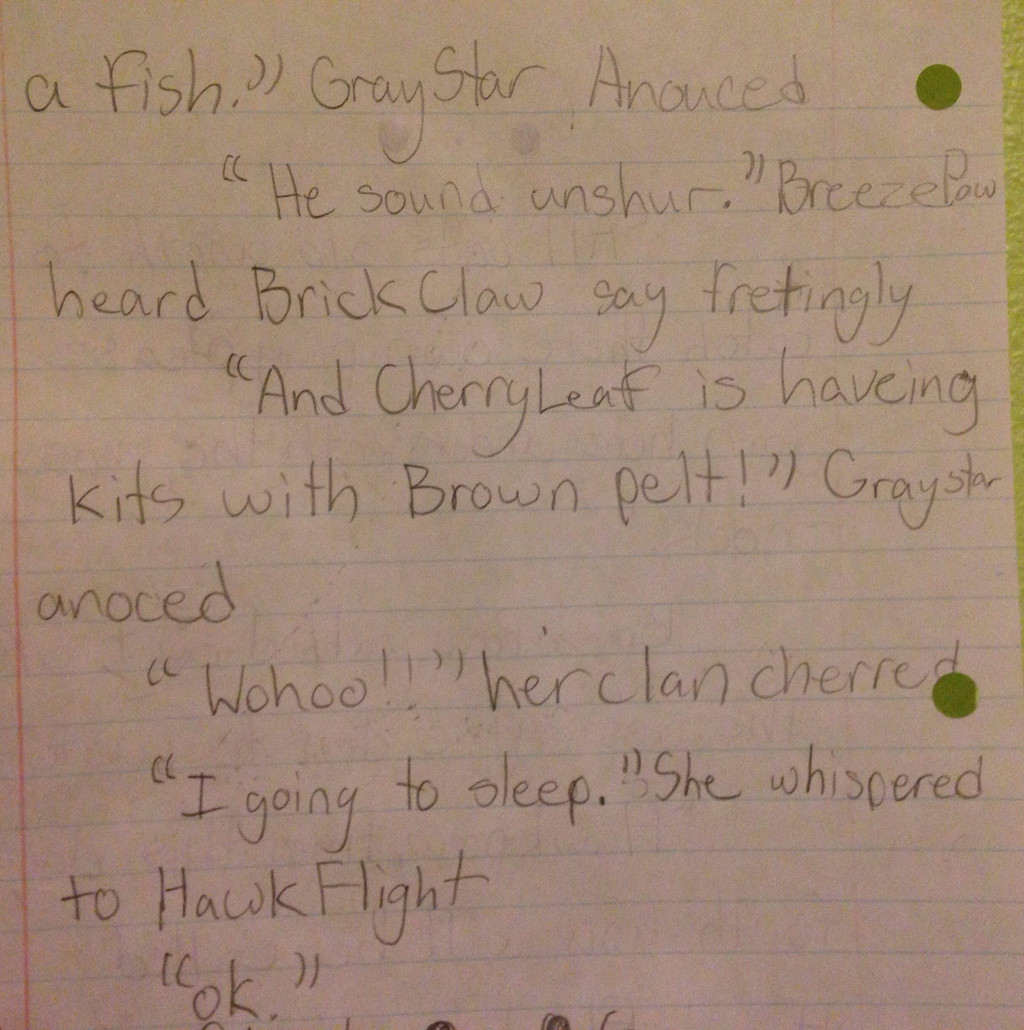 a fish." GrayStar Anouced
"He sound unshur." BreezePaw
heard BrickClaw say fretingly
"And CherryLeaf is haveing
kits with Brown pelt!" Graystar
anoced
"Wohoo!!" her clan cherred
"I going to sleep." She whispered
to HawkFlight
"ok."